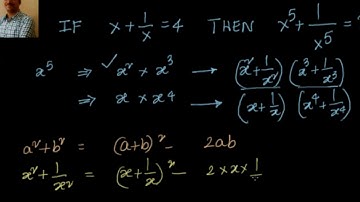 IF x + 1/x = 4 THEN x⁵ + 1/x⁵ =
x⁵ ⇒ ✓ x² × x³ → (x² + 1/x²) (x³ + 1/x³)
⇒ x × x⁴ → (x + 1/x) (x⁴ + 1/x⁴)
a² + b² = (a+b)² - 2ab
x² + 1/x² = (x + 1/x)² - 2 × x × 1/